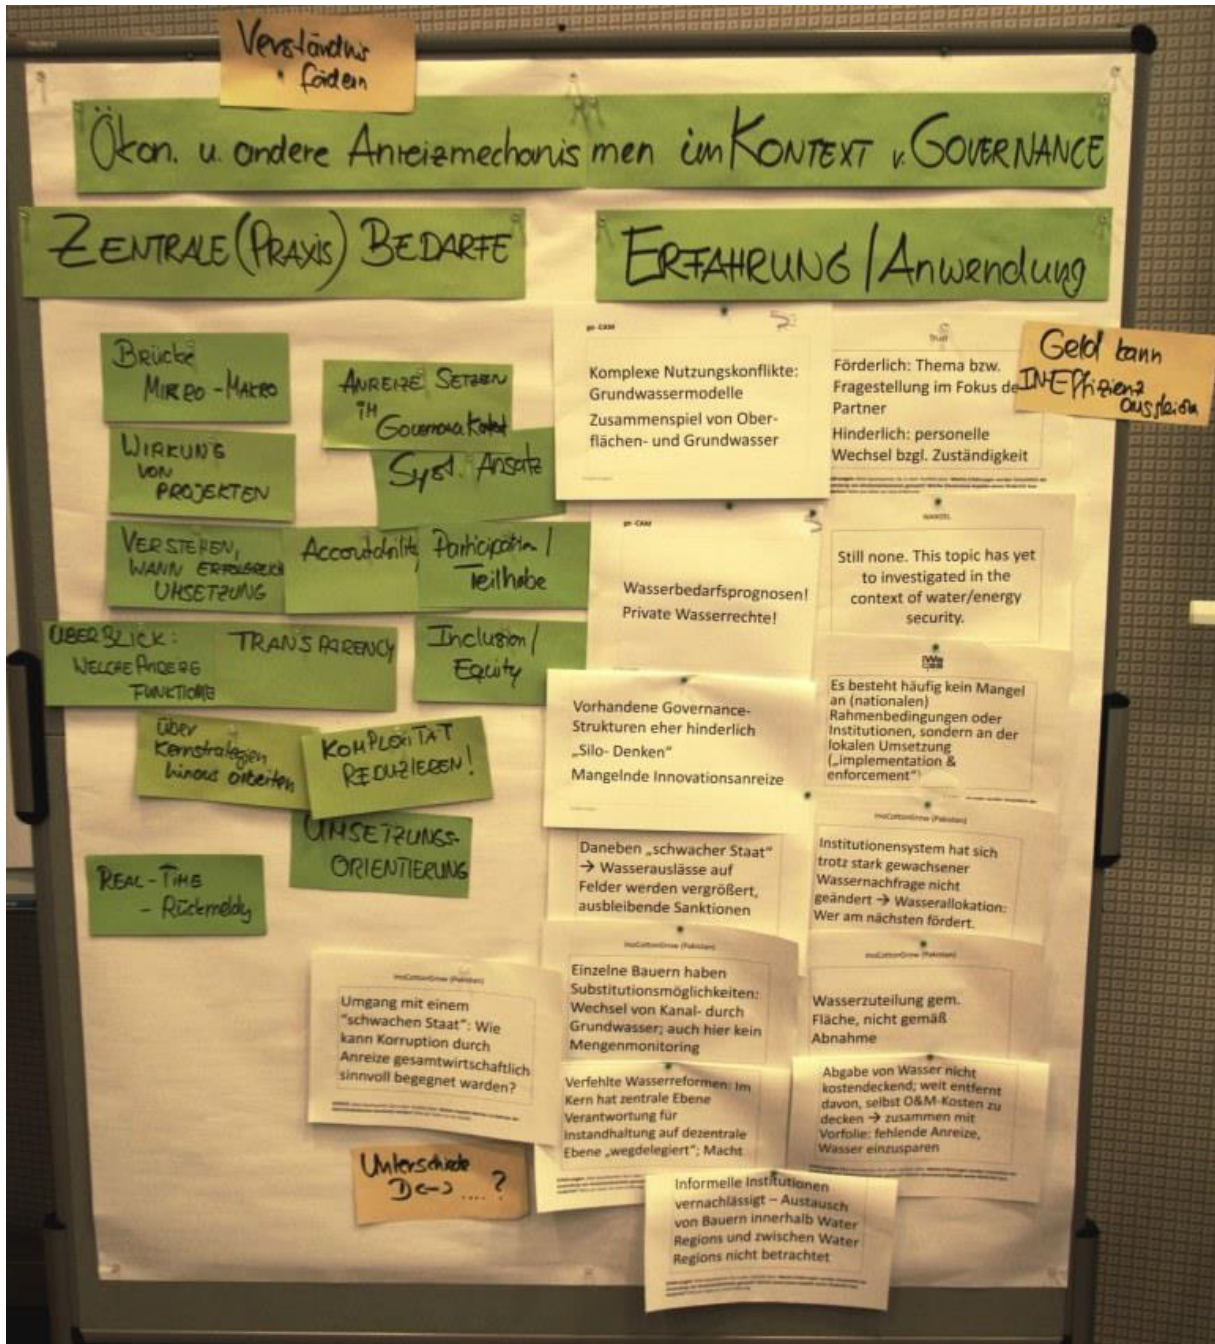 Verständnis
fördern
Ökon. u. andere Anreizmechanismen im KONTEXT v. GOVERNANCE
ZENTRALE (PRAXIS) BEDARFE
BRÜCKE
MIKRO - MAKRO
ANREIZE SETZEN
IM
Governance Kontext
WIRKUNG
VON
PROJEKTEN
Syst. Ansatz
VERSTEHEN,
WANN ERFOLGREICH
UMSETZUNG
Accountability
Participation /
Teilhabe
ÜBERBLICK:
WELCHE ANREIZE
TRANSPARENCY
Inclusion /
Equity
über
Kernstrategien
hinaus arbeiten
KOMPLEXITÄT
REDUZIEREN!
UMSETZUNGS-
ORIENTIERUNG
REAL-TIME
- Rückmeldg
InoCottonGrow (Pakistan)
Umgang mit einem
"schwachen Staat": Wie
kann Korruption durch
Anreize gesamtwirtschaftlich
sinnvoll begegnet warden?
Unterschiede
D <-> .... ?
ERFAHRUNG / Anwendung
go-CAM
Komplexe Nutzungskonflikte:
Grundwassermodelle
Zusammenspiel von Ober-
flächen- und Grundwasser
Trust
Förderlich: Thema bzw.
Fragestellung im Fokus de
Partner
Hinderlich: personelle
Wechsel bzgl. Zuständigkeit
Geld kann
INEffizienz
go-CAM
Wasserbedarfsprognosen!
Private Wasserrechte!
WANDEL
Still none. This topic has yet
to investigated in the
context of water/energy
security.
Vorhandene Governance-
Strukturen eher hinderlich
„Silo- Denken“
Mangelnde Innovationsanreize
Es besteht häufig kein Mangel
an (nationalen)
Rahmenbedingungen oder
Institutionen, sondern an der
lokalen Umsetzung
(„implementation &
enforcement“)
Daneben „schwacher Staat“
→ Wasserauslässe auf
Felder werden vergrößert,
ausbleibende Sanktionen
InoCottonGrow (Pakistan)
Institutionensystem hat sich
trotz stark gewachsener
Wassernachfrage nicht
geändert → Wasserallokation:
Wer am nächsten fördert.
InoCottonGrow (Pakistan)
Einzelne Bauern haben
Substitutionsmöglichkeiten:
Wechsel von Kanal- durch
Grundwasser; auch hier kein
Mengenmonitoring
InoCottonGrow (Pakistan)
Wasserzuteilung gem.
Fläche, nicht gemäß
Abnahme
Verfehlte Wasserreformen: Im
Kern hat zentrale Ebene
Verantwortung für
Instandhaltung auf dezentrale
Ebene „wegdelegiert“; Macht
Abgabe von Wasser nicht
kostendeckend; weit entfernt
davon, selbst O&M-Kosten zu
decken → zusammen mit
Vorfolie: fehlende Anreize,
Wasser einzusparen
Informelle Institutionen
vernachlässigt – Austausch
von Bauern innerhalb Water
Regions und zwischen Water
Regions nicht betrachtet